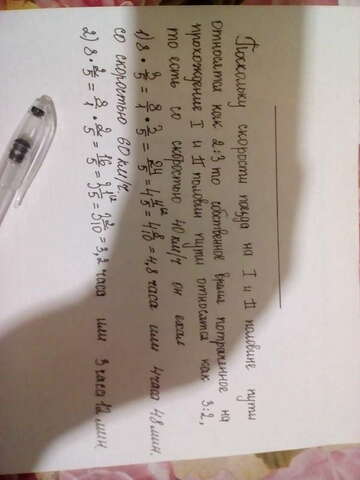 Поскольку скорости поезда на I и II половине пути
относятся как 2:3 то собственное время потраченное на
прохождение I и II половин пути относятся как 3:2,
то есть со скоростью 40 км/ч он ехал
1) 8 · 3/5 = 8/1 · 3/5 = 24/5 = 4 4/5 = 4 8/10 = 4,8 часа или 4 часа 48 мин.
со скоростью 60 км/ч.
2) 8 · 2/5 = 8/1 · 2/5 = 16/5 = 3 1/5 = 3 2/10 = 3,2 часа или 3 часа 12 мин